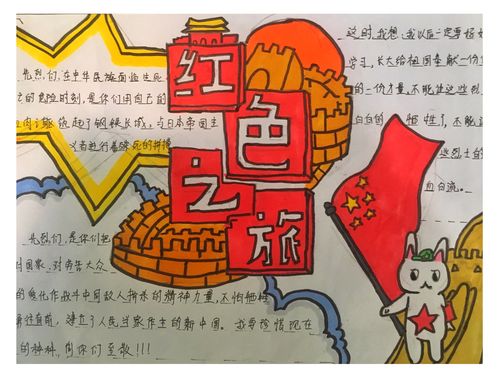 红色之旅
先烈们,在中华民族面临生死
亡的危险时刻,是你们用自己的
肉筑起了钢铁长城,与日本帝国主
义者进行着殊死的拼搏
这时,我想:我以后一定要好好
学习,长大给祖国奉献一份
的一份力量,不能让这些烈
白白的牺牲了,不能
些烈士的
血白流。
先烈们,是你们把
对国家、对劳苦大众
的 化作战斗中同敌人拼杀的精神力量,不怕牺牲
勇往直前,建立了人民当家作主的新中国。我要珍惜现在
的种种,向你们至敬!!!